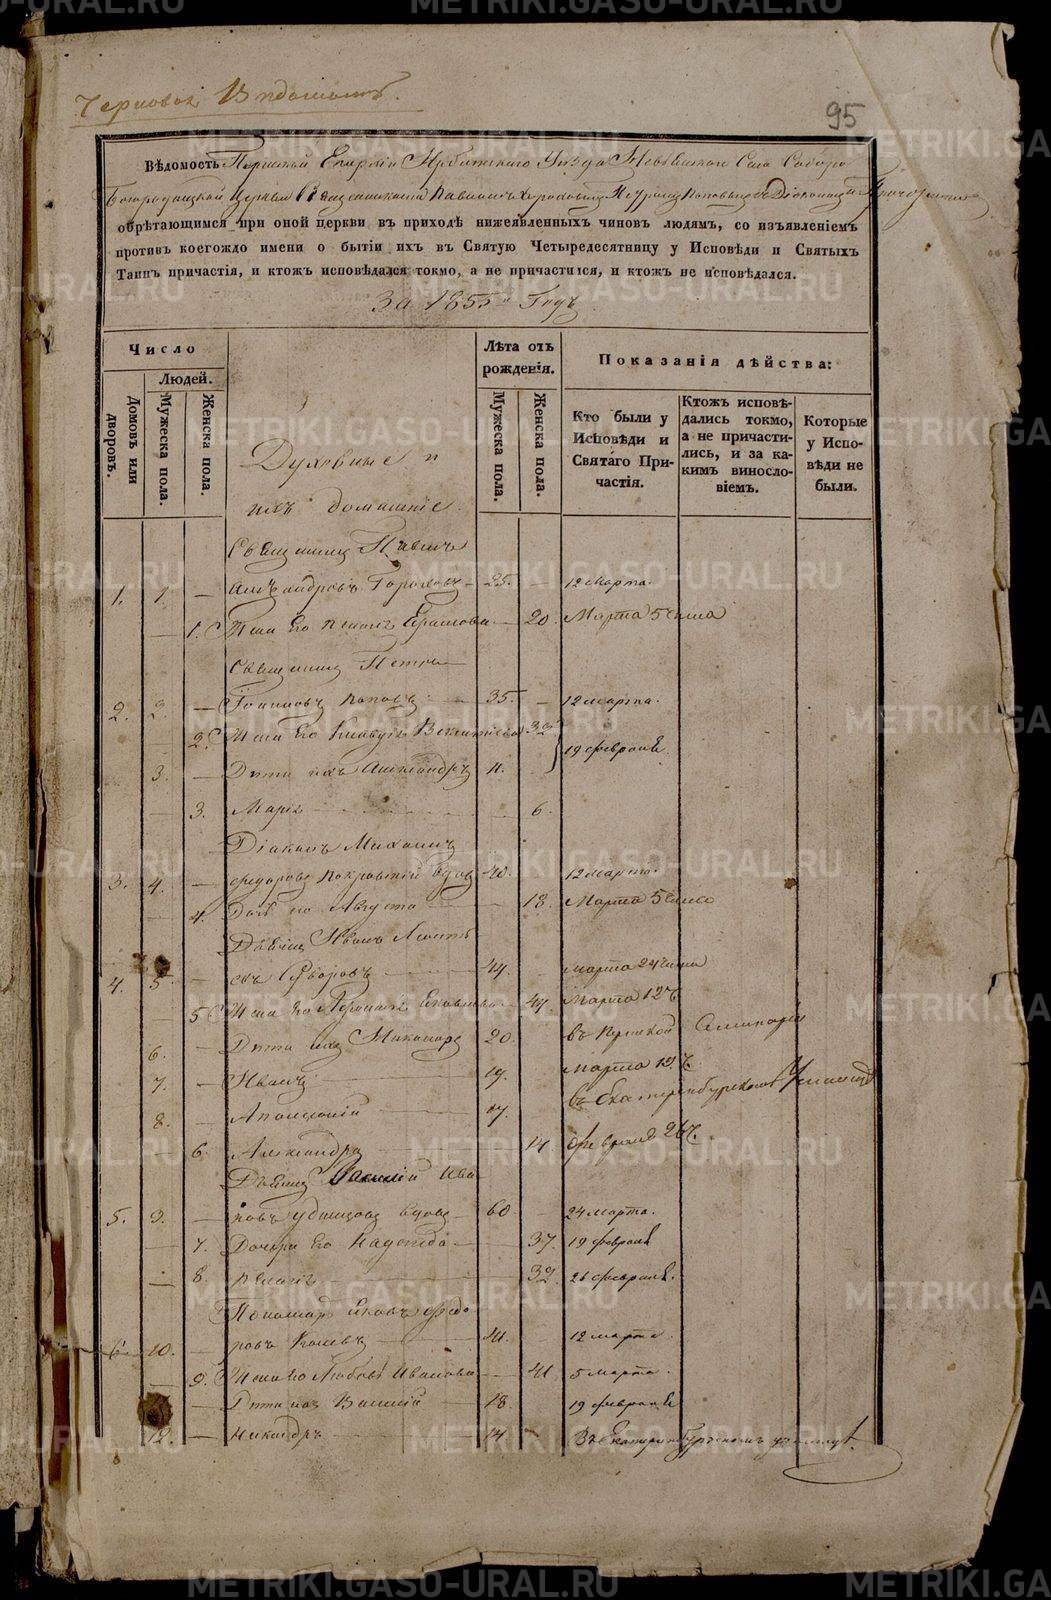 Черновая Вѣдомость.
95
Вѣдомость Пермской Епархіи Ирбитскаго Уѣзда Села
Богородицкой Церкви Священниками Павломъ Гороховымъ Петромъ Поповымъ съ Діакономъ и Причетниками
обрѣтающимся при оной церкви въ приходѣ нижеявленныхъ чиновъ людямъ, со изъявленіемъ
противъ коегождо имени о бытіи ихъ въ Святую Четыредесятницу у Исповѣди и Святыхъ
Таинъ причастія, и ктожъ исповѣдался токмо, а не причастился, и ктожъ не исповѣдался.
За 1855й Годъ
Число
Людей.
Домовъ или дворовъ.
Мужеска пола.
Женска пола.
Лѣта отъ рожденія.
Мужеска пола.
Женска пола.
Показанія дѣйства:
Кто были у Исповѣди и Святаго Причастія.
Ктожъ исповѣдались токмо, а не причастились, и за какимъ винословіемъ.
Которые у Исповѣди не были.
Духовные и
ихъ домашніе.
Священникъ Павелъ
1. 1. — Александровъ Гороховъ — 25. — 12 марта.
— 1. Жена Его — 20. Марта 5 числа
Священникъ Петръ
2. 2. — Іоанновъ Поповъ — 35. — 12 марта.
2. Жена Его Клавдія 32
19 февраля
3. — Дѣти ихъ Александръ 11.
3. Марія 6.
Діаконъ Михаилъ
3. 4. — Федоровъ Покровскій вдовъ 40. 12 марта.
4. Дочь его Августа 18. Марта 5 числа
Дьячекъ Иванъ
4. 5. — 44. марта 24 числа
5 Жена Его Яковлева 47 Марта 12 ч
6. — Дѣти ихъ Никаноръ 20. въ Пермской Семинаріи
7. — Иванъ 19. марта 12. ч
8. — Аполлоній 17. въ Екатеринбургскомъ Училищѣ
6. Александра 14. февраля 26 ч.
Дьячекъ Василій Ива-
5. 9. — новъ Удинцовъ вдовъ 60 24 марта.
7. Дочери Его Надежда 37. 19 февраля
8. 32. 26 февраля.
Пономарь Яковъ Федо-
6. 10. — ровъ 41. 12 марта.
9. Жена Его Любовь Иванова 41 5 марта.
— Дѣти ихъ Василій 18. 19 февраля
12. — Никандръ 14. Въ Екатеринбургскомъ училищѣ.
METRIKI.GASO-URAL.RU